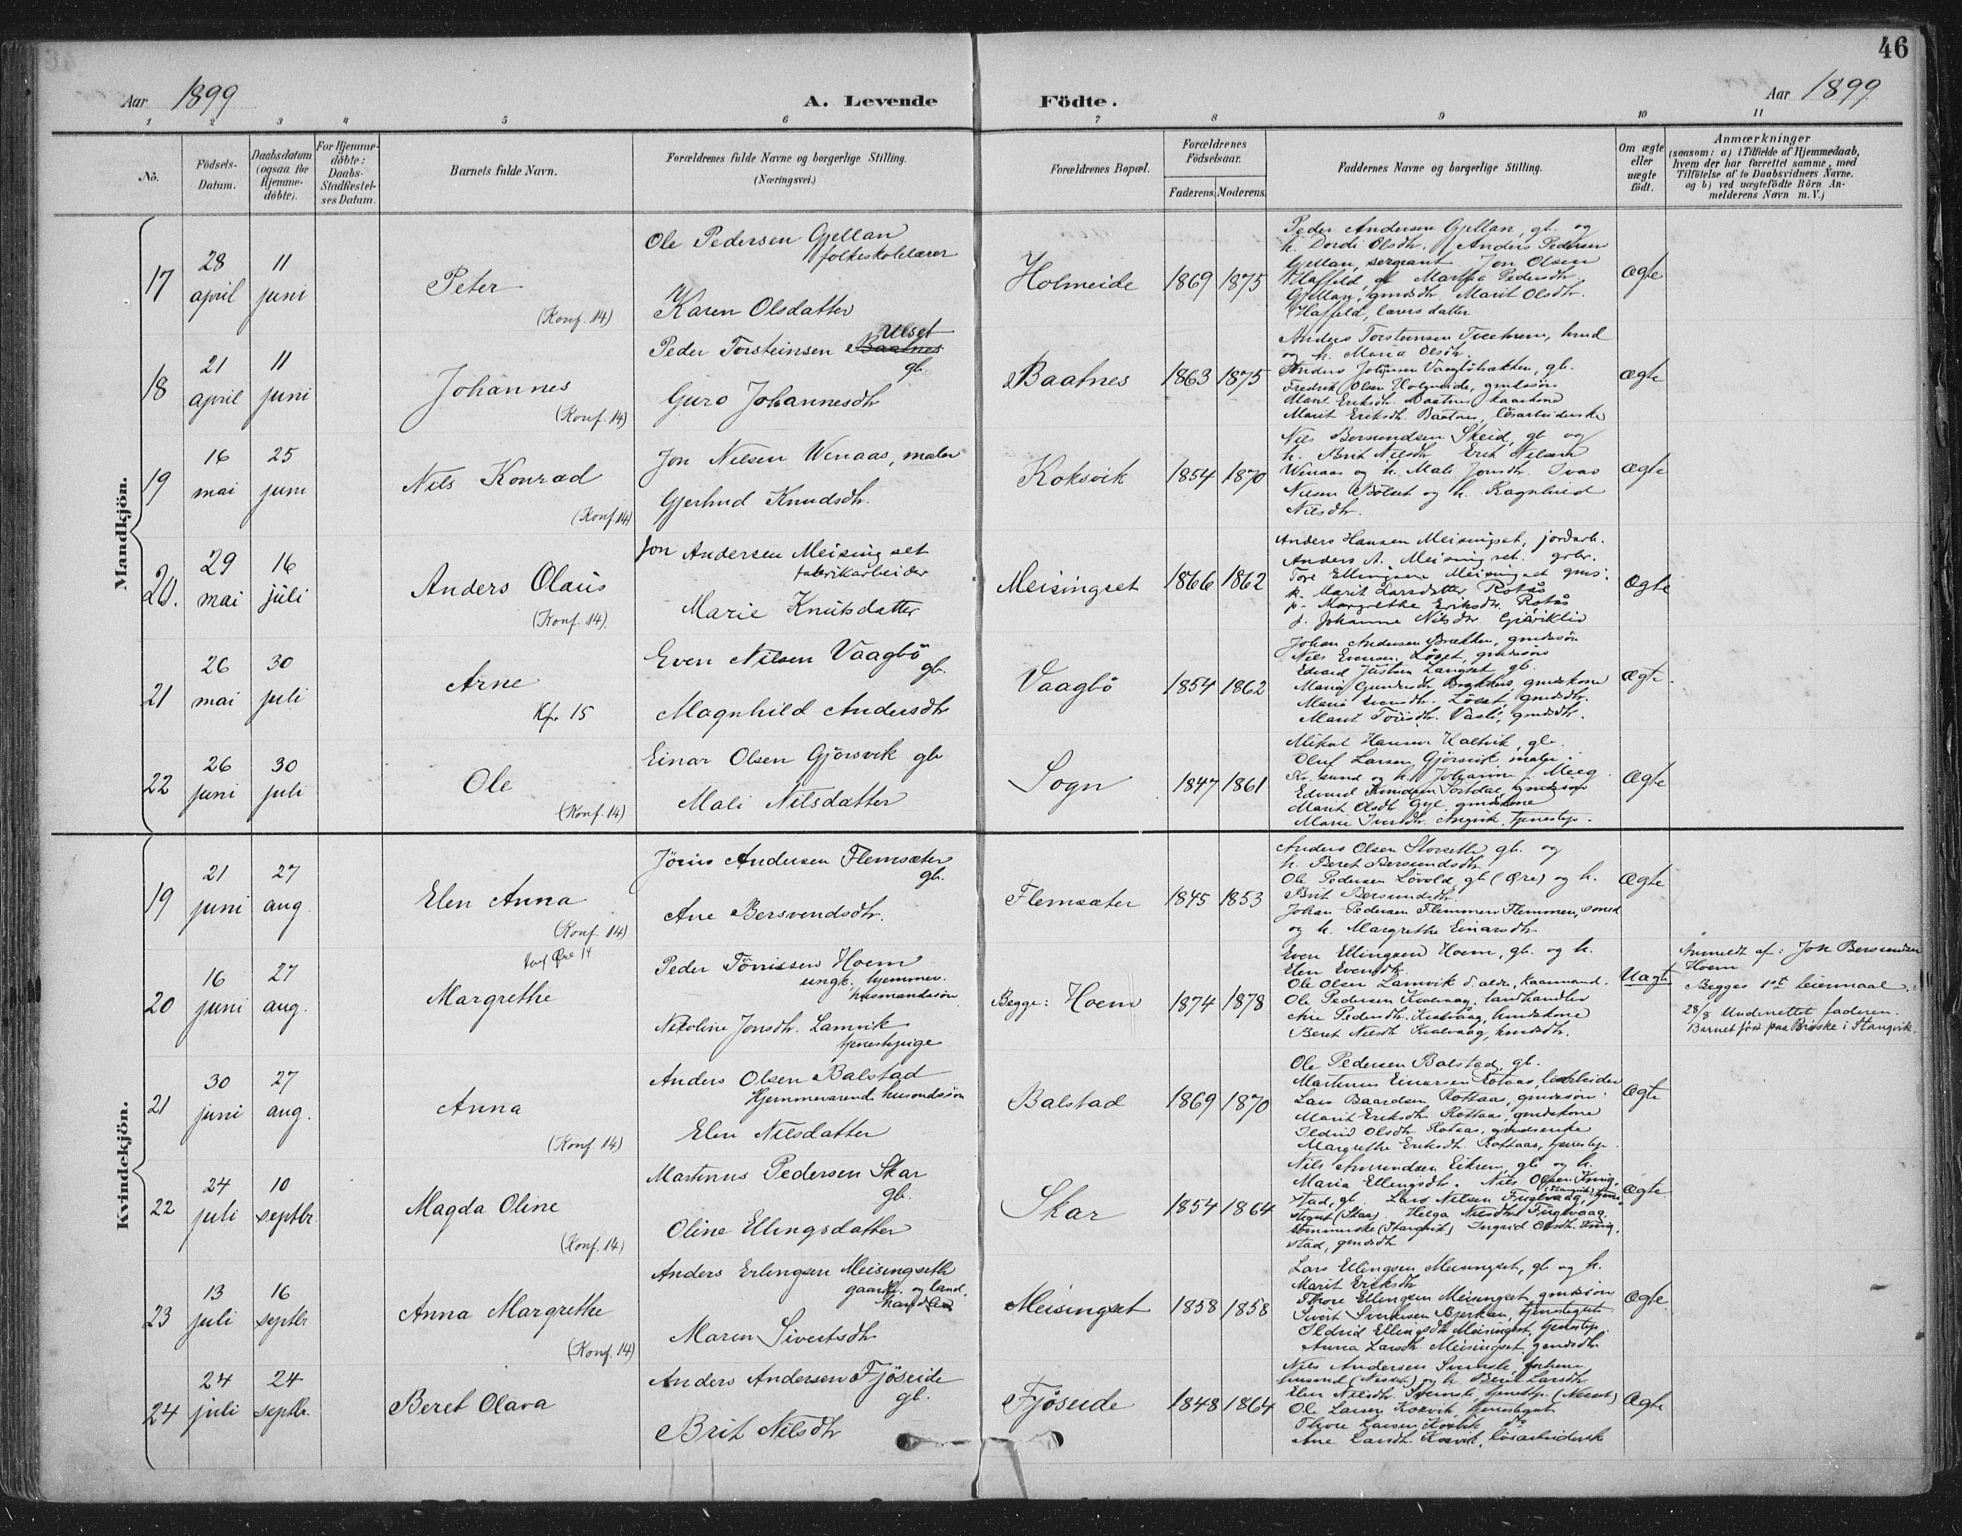 46
Aar 1899 A. Levende Födte. Aar 1899
1 2 3 4 5 6 7 8 9 10 11
No.
Födsels-Datum.
Daabsdatum (ogsaa for Hjemme-döbte).
For Hjemme-döbte: Daabs-Stadfæstel-ses Datum.
Barnets fulde Navn.
Forældrenes fulde Navne og borgerlige Stilling.
(Næringsvei.)
Forældrenes Bopæl.
Forældrenes Födselsaar.
Faderens. Moderens.
Faddernes Navne og borgerlige Stilling.
Om ægte eller uægte födt.
Anmærkninger
(saasom: a) i Tilfælde af Hjemmedaab, hvem der har forrettet samme, med Tilföielse af to Daabsvidners Navne. og b) ved uægtefödte Börn An-melderens Navn m. V.)
Mandkjön.
17
28 april
11 juni
Peter
(Konf. 14)
Ole Pedersen Gjellan
folkeskolelærer
Karen Olsdatter
Holmeide
1869 1875
Peder Andersen Gjellan, gb. og
h. Dordi Olsdtr. Anders Pedersen
Gjellan, sergeant. Jon Olsen
Haffeld, Martha Pedersdtr.
Gjellan, gmdsdtr. Marit Olsdtr.
Haffeld, lærersdatter
Ægte
18
21 april
11 juni
Johannes
(Konf. 14)
Peder Torsteinsen Baatnes Ulset
gb.
Guro Johannesdtr
Baatnes
1863 1875
Anders Torsteinsen
og h. Maria Olsdtr.
Anders gb.
Fredrik Olsen Holmeide, gmdssön
Marit Eriksdtr. Baatnes, kaarkone
Marit Eriksdtr. Baatnes, lösarbeiderske
Ægte
19
16 mai
25 juni
Nils Konrad
(Konf. 14)
Jon Nilsen Wenaas, maler
Gjertrud Knudsdtr.
Koksvik
1854 1870
Nils Bersvendsen Skeid, gb og
h. Brit Nilsdtr. Erik Nilsen
Wenaas og h. Mali Jonsdtr. Ivar
Nilsen Bölset og h. Ragnhild
Nilsdtr.
Ægte
20.
29 mai
16 juli
Anders Olaus
(Konf. 14).
Jon Andersen Meisingset
fabrikarbeider
Marie Knutsdatter
Meisingset
1866 1862
Anders Hansen Meisingset, jordarb.
Anders A. Meisingset. grbr.
Tore Ellingsen Meisingset gms.
k. Marit Larsdatter Rotås
p. Margrethe Eriksdtr. Rotås
p. Johanne Nilsdtr.
Ægte
21
26 mai
30 juli
Arne
Kfr. 15
Even Nilsen Vaagbö
gb.
Magnhild Andersdtr
Vaagbö
1854 1862
Johan Andersen Brætten, gmdssön
Nils Evensen Löset, gmdssön
Edvard Langset, gb.
Maria gmdskone
Maria Löset, gmdsdtr.
Marit gmdsdtr.
Ægte
22
26 juni
30 juli
Ole
(Konf. 14)
Einar Olsen Gjörsvik gb
Mali Nilsdatter
Sogn
1847 1861
Mikal Hansen Kaltvik, gb.
Oluf Larsen Gjörsvik, maler
Kr. sund og h. Johanne f. Meeg
Edvard Knudsen gmdssön
Marit Olsdtr Gyl, gmdskone
Marie Iversdtr. Angvik, tjenestep.
Ægte
Kvindekjön.
19
21 juni
27 aug.
Elen Anna
(Konf. 14)
Andersen Flemsæter
gb.
Ane Bersvendsdtr.
Flemsæter
1845 1853
Anders Olsen Storseth gb. og
h. Beret Bersvendsdtr.
Ole Pedersen Lövold, gb (Öre) og h.
Brit Bersvendsdtr.
Johan Pedersen Flemmen, smed
og h. Margrethe Einarsdtr.
Ægte
20
16 juni
27 aug.
Konf Öre 14
Margrethe
Peder Törrissen Hoem
ungk. hjemmev.
husmandssön.
Nikoline Jonsdtr. Lamvik
tjenestepige
Begge: Hoem
1874 1878
Even Ellingsen Hoem, gb. og h.
Elen Evensdtr.
Ole Olsen Lamvik d. ældr., kaarmand.
Ole Pedersen Kvalvaag, landhandler
Ane Pedersdtr. Kvalvaag, gmdskone
Beret Nilsdtr Kvalvaag, gmdsdtr.
Uægte
Anmeldt af: Jon Bersvendsen
Hoem
Begges 1ste leiermaal.
28/8 Underrettet faderen.
Barnet föd paa Bröske i Stangvik.
21
30 juni
27 aug.
Anna
(Konf. 14)
Anders Olsen Balstad
Hjemmeværende husmdssön
Elen Nilsdatter
Balstad
1869 1870
Ole Pedersen Balstad, gb.
Martinus Einarsen Rotaas, lösarbeider
Lars Baardsen Rottaas, gmdssön
Marit Eriksdtr. Rottaas, gmdskone
Ildrid Olsdtr Rotaas, gmdsenke
Margrethe Eriksdtr. Rottaas, tjenestep.
Ægte
22
24 juli
10 septbr.
Magda Oline
(Konf. 14)
Martinus Pedersen Skar
gb.
Oline Ellingsdatter
Skar
1854 1864
Nils Amundsen Eikrem, gb og h.
Maria Ellingsdtr. Nils Olsen
stad, gb. Lars Nilsen Fuglvaag,
(Skar). Helga Nilsdtr Fuglvaag
(Stangvik) Ingrid Olsdtr.
stad, gmdsdtr
Ægte
23
13 juli
16 septbr
Anna Margrethe
(Konf. 14)
Anders Erlingsen Meisingseth
gaardb. og land.
handler
Maren Sivertsdtr
Meisingset
1858 1858
Lars Ellingsen Meisingset, gb og h.
Marit Eriksdtr
Thore Ellingsen Meisingset, gmdssön
Sivert Sivertsen Bjerkan, tjenestegut
Ildrid Ellingsdtr Meisingset, tjenestep.
Anna Larsdtr Meisingset, gmdsdtr
Ægte
24
24 juli
24 septbr.
Beret Olava
Anders Andersen Fjöseide
gb.
Brit Nilsdtr
Fjöseide
1848 1864
Nils Andersen
husmd (Nesset) og h. Beret Larsdtr
Elen Nilsdtr tjenestp. (Nesset)
Ole Larsen Koksvik, tjenestegut
Thore Larsen Koksvik do
Ane Larsdtr. Koksvik, lösarbeiderske
Ægte